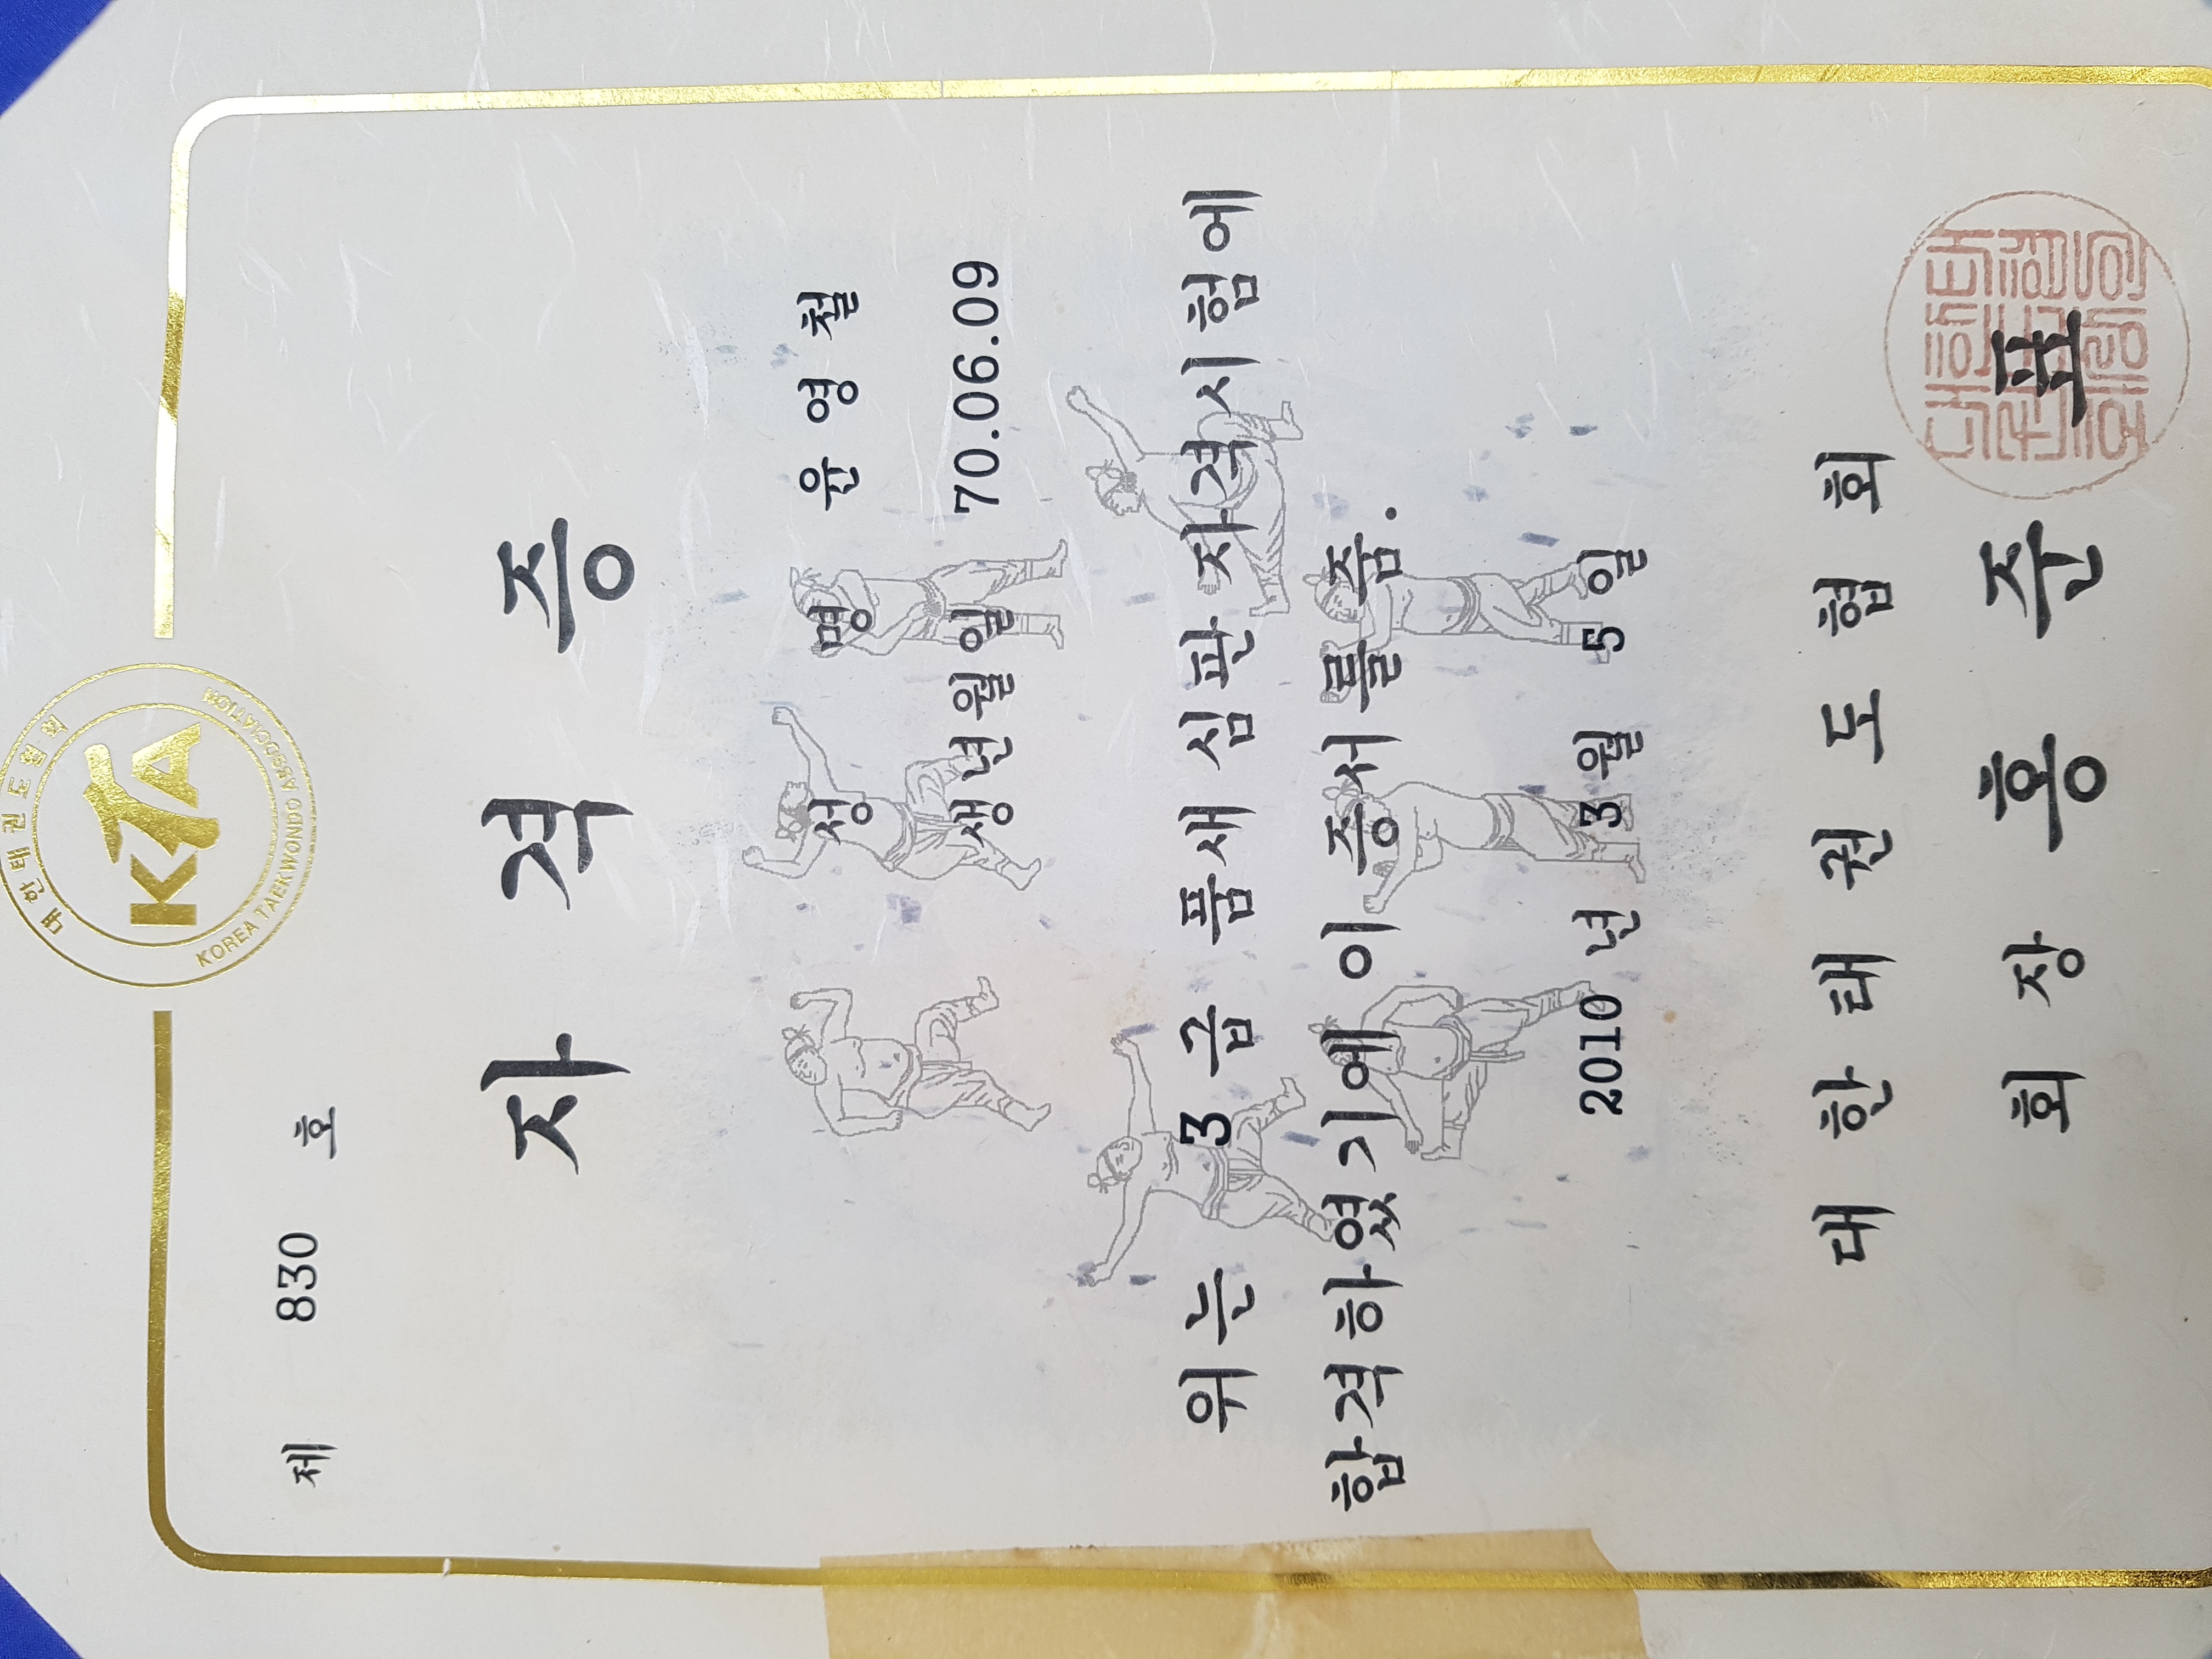 대한태권도협회
KTA
KOREA TAEKWONDO ASSOCIATION
제 830 호
자 격 증
성 명 윤 영 철
생년월일 70.06.09
위는 3 급 품새 심판 자격시험에
합격하였기에 이 증서를 줌.
2010 년 3월 5일
대 한 태 권 도 협 회
회 장 홍 준 표